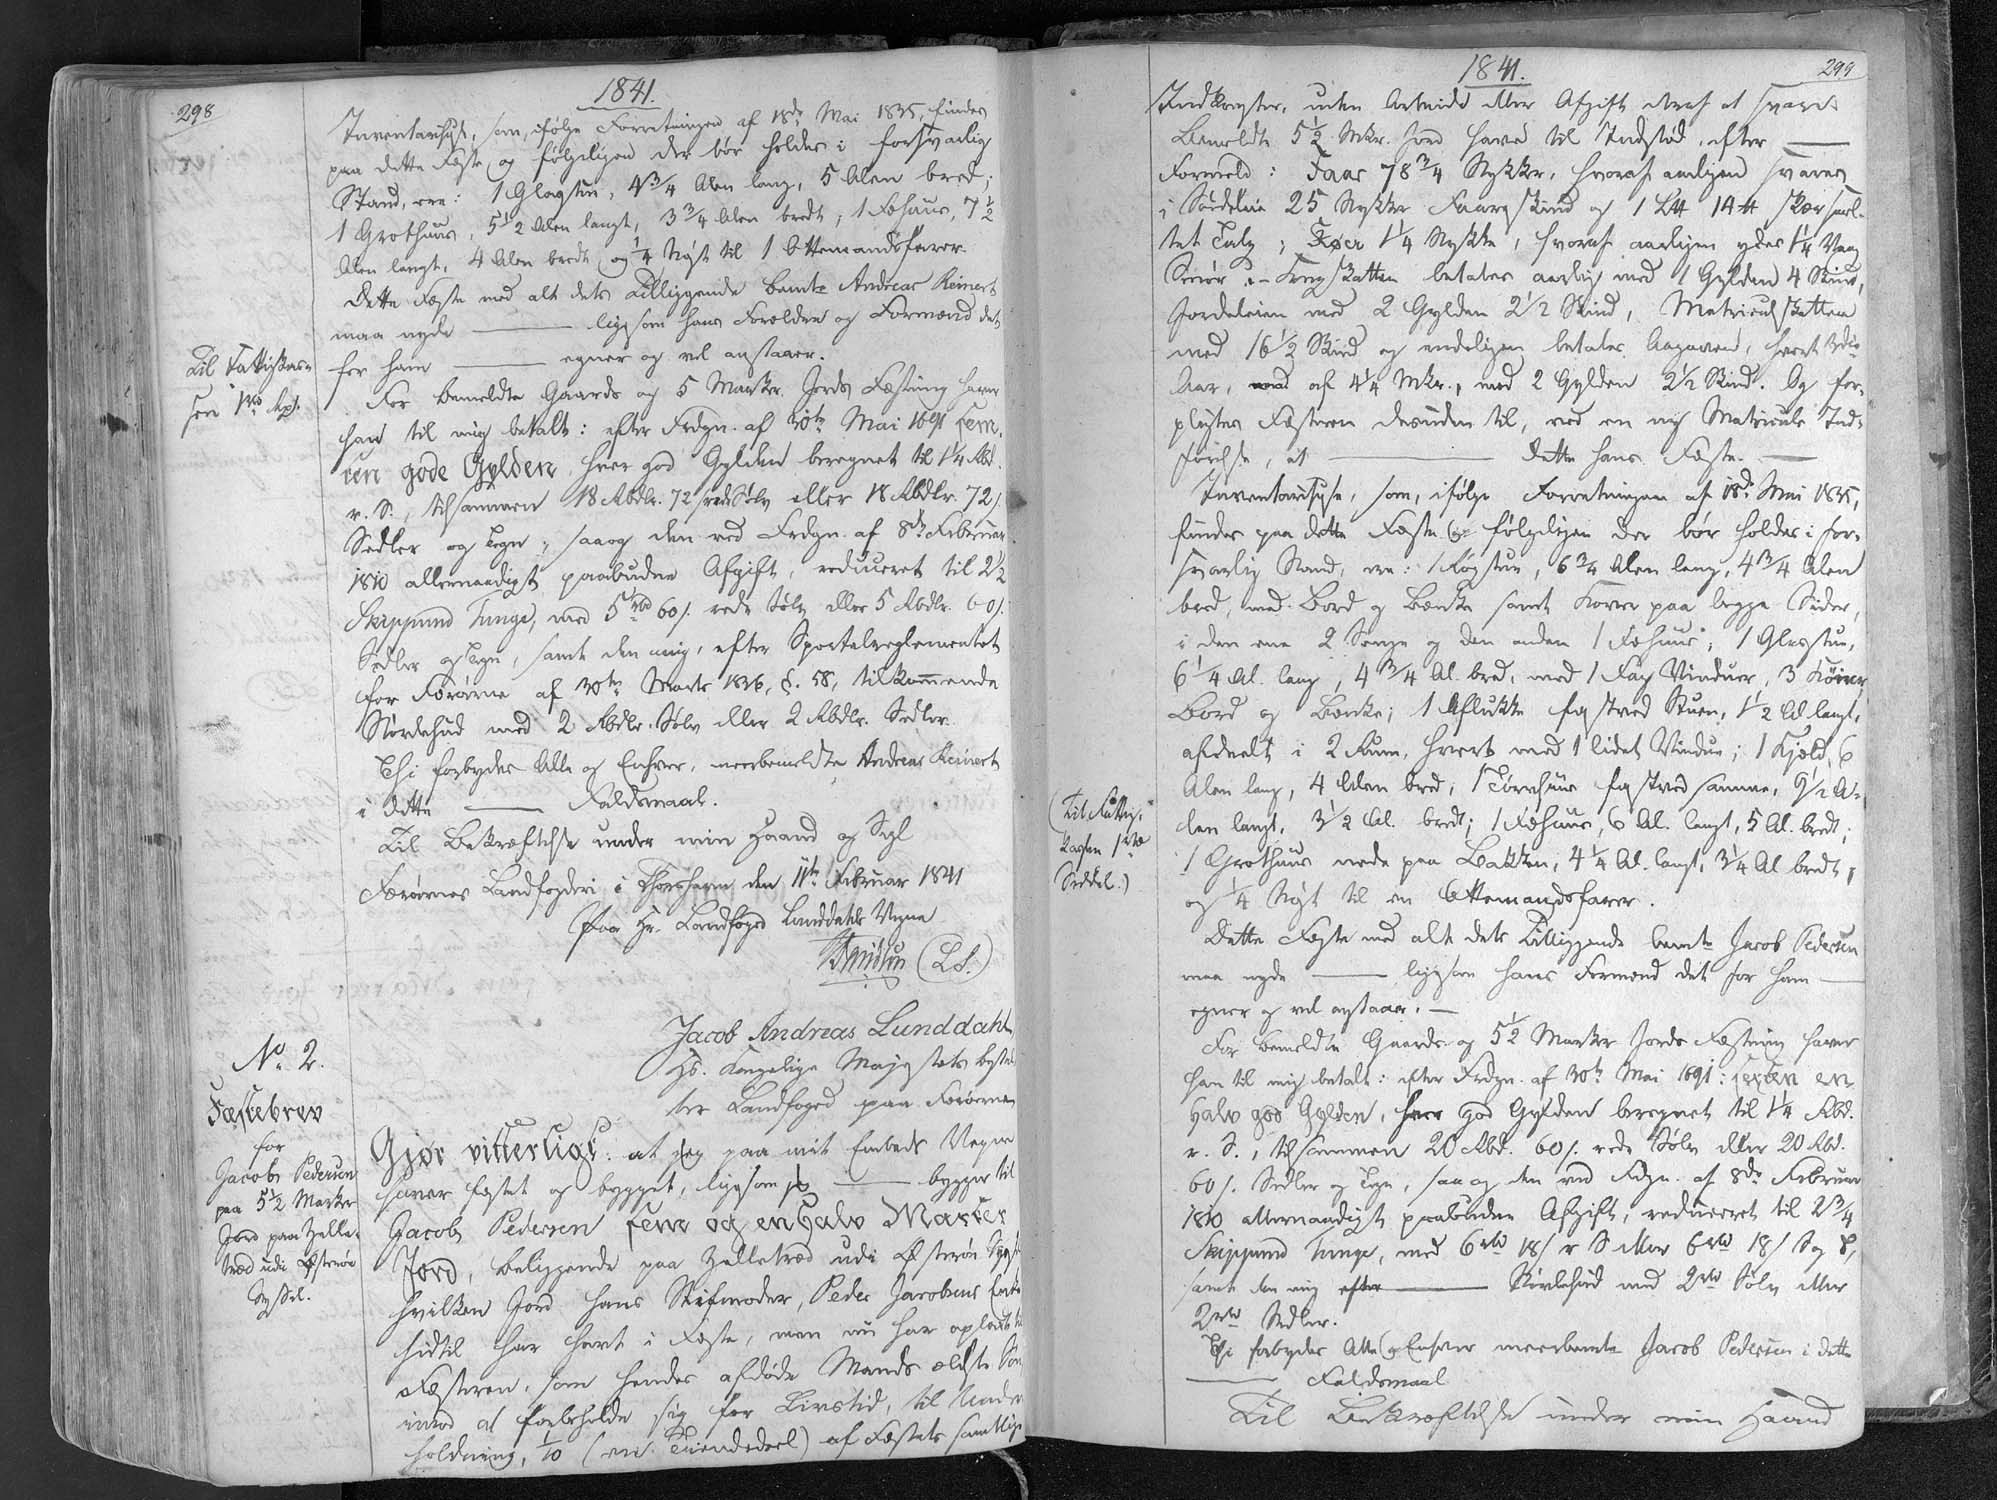 298
1841.
Inventariet, som, ifølge Forretningen af 18de Mai 1835, findes
paa dette Fæste, og følgeligen der bør holdes i forsvarlig
Stand, ere: 1 Glasstue, 4 3/4 Alen lang, 5 Alen bred;
1 Grothuus, 5 1/2 Alen langt, 3 3/4 Alen bredt; 1 Fæhuus, 7 1/2
Alen langt, 4 Alen bredt og 1/4 Nøst til 1 Ottemandsfarer.
Dette Fæste med alt dets Tilliggende bemte Andreas Reinert
maa nyde ——— ligesom hans Forældre og Formænd det
for ham ——— egner og vel anstaaer.
Til Fattigkas-
sen 1 rbd
For bemeldte Gaards og 5 Marker Jords Fæstning haver
han til mig betalt: efter Frdgn. af 30te Mai 1691 fem-
ten gode Gylden, hver god Gylden beregnet til 1 1/4 Rbd.
r. S., tilsammen 18 Rbdlr. 72 s rede Sølv eller 18 Rbdlr. 72 s.
Sedler og Tegn; saa og den ved Frdgn. af 8de Februar
1810 allernaadigst paabudne Afgift, reduceret til 2 1/2
Skippund Tunge, med 5 rbd 60 s. rede Sølv eller 5 Rbdlr. 60 s.
Sedler og Tegn, samt den mig, efter Sportelreglementet
for Færøerne af 30te Marts 1836, §. 58, tilkommende
Støvlehud med 2 Rbdlr. Sølv eller 2 Rbdlr. Sedler.
Thi forbydes Alle og Enhver, meerbemeldte Andreas Reinert
i dette ——— Faldsmaal.
Til Bekræftelse under min Haand og Segl
Færøernes Landfogderi i Thorshavn den 11te Februar 1841
Paa Hr. Landfoged Lunddahls Vegne
(L.S.)
No. 2.
Fæstebrev
for
Jacob Pedersen
paa 5 1/2 Marker
Jord paa Zelle-
træd udi Østerøe
Syssel.
Jacob Andreas Lunddahl,
Hs. Kongelige Majestæts bestal-
ter Landfoged paa Færøerne
Gjør vitterligt: at jeg paa mit Embeds Vegne
haver fæstet og bygget, ligesom jeg ——— bygger til
Jacob Pedersen fem og en halv Marker
Jord, beliggende paa Zelletræd udi Østerøe Syssel
hvilken Jord hans Stifmoder, Peder Jacobsens Enke
hidtil har havt i Fæste, men nu har opladt til
Fæsteren, som hendes afdøde Mands ældste Søn
imod at forbeholde sig for Livstid, til Under-
holdning, 1/10 (en Tiendedeel) af Fæstets samtlige
299
1841.
Indkomster, uden Arbeide eller Afgift deraf at svare.
Bemeldte 5 1/2 Mkr. Jord have til Indstød, efter ———
Formeld: Faar 78 3/4 Stykker, hvoraf aarligen svares
i Landleie 25 Stykker Faareskind og 1 L℔ 14 ℔ skær smel-
tet Talg; Køer 1 1/4 Stykke, hvoraf aarligen ydes 1 1/4 Vaag
Smør; – Krigsskatten betales aarlig med 1 Gylden 4 Skind,
Jordeleien med 2 Gylden 2 1/2 Skind, Matriculskatten
med 16 1/2 Skind og endeligen betales Aagaven, hvert 3die
Aar, af 4 1/4 Mkr., med 2 Gylden 2 1/2 Skind. Og for-
pligtes Fæsteren desuden til, ved en ny Matricule Ind-
førelse, at ——— dette hans Fæste. —
Inventariet, som, ifølge Forretningen af 18de Mai 1835,
findes paa dette Fæste og følgeligen der bør holdes i for-
svarlig Stand, ere: 1 Røgstue, 6 3/4 Alen lang, 4 3/4 Alen
bred, med Bord og Bænke samt Kover paa begge Sider,
i den ene 2 Senge og den anden 1 Fæhuus; 1 Glasstue,
6 1/4 Al. lang, 4 3/4 Al. bred, med 1 Fag Vinduer, 3 Køier,
Bord og Bænke; 1 Aflukke fast ved Stuen, 1 1/2 Al. langt,
afdeelt i 2 Rum, hvert med 1 lidet Vindue; 1 Hjeld, 6
Alen lang, 4 Alen bred; 1 Tørvhuus fast ved samme, 9 1/2 A-
len langt, 3 1/2 Al. bredt; 1 Fæhuus, 6 Al. langt, 5 Al. bredt;
1 Grothuus nede paa Bakken, 4 1/4 Al. langt, 3 1/4 Al bredt,
og 1/4 Nøst til en Ottemandsfarer.
(Til Fattig-
kassen 1 rbd
Seddel.)
Dette Fæste med alt dets Tilliggende bemte Jacob Pedersen
maa nyde ——— ligesom hans Formænd det for ham —
egner og vel anstaaer. —
For bemeldte Gaards og 5 1/2 Marker Jords Fæstning haver
han til mig betalt: efter Frdgn. af 30te Mai 1691: sexten en
halv god Gylden, hver god Gylden beregnet til 1 1/4 Rbd.
r. S., tilsammen 20 Rbd. 60 s. rede Sølv eller 20 Rbd.
60 s. Sedler og Tegn, saa og den ved Fdgn. af 8de Februar
1810 allernaadigst paabudne Afgift, reduceret til 2 3/4
Skippund Tunge, med 6 rbd 18 s r S eller 6 rbd 18 s S og T,
samt den mig efter ——— Støvlehud med 2 rbd Sølv eller
2 rbd Sedler.
Thi forbydes Alle og Enhver meerbemte Jacob Pedersen i dette
——— Faldsmaal
Til Bekræftelse under min Haand